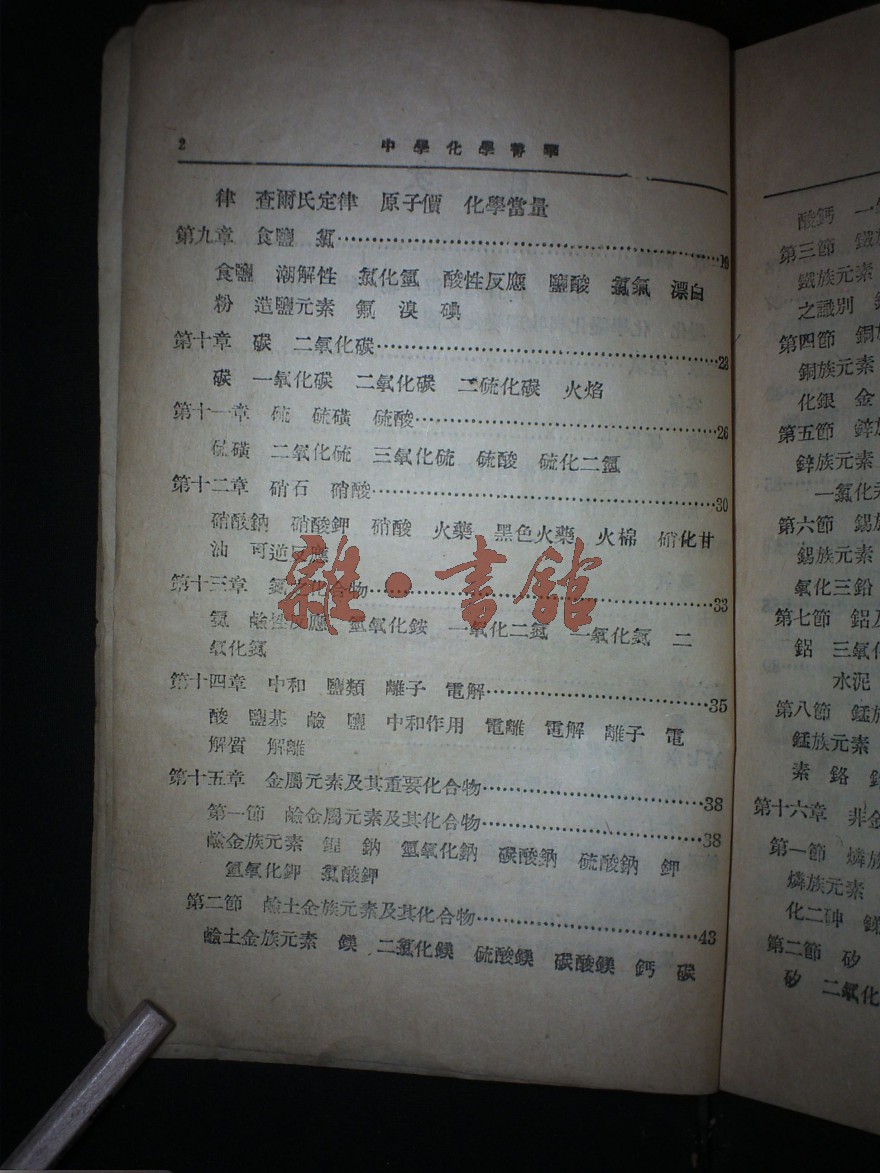 2
中學化學菁華
律 查爾氏定律 原子價 化學當量
第九章 食鹽 氯……19
食鹽 潮解性 氯化氫 酸性反應 鹽酸 氯氣 漂白
粉 造鹽元素 氟 溴 碘
第十章 碳 二氧化碳……23
碳 一氧化碳 二氧化碳 二硫化碳 火焰
第十一章 硫 硫磺 硫酸……26
硫磺 二氧化硫 三氧化硫 硫酸 硫化二氫
第十二章 硝石 硝酸……30
硝酸鈉 硝酸鉀 硝酸 火藥 黑色火藥 火棉 硝化甘
油 可逆反應
第十三章 氮之化合物……33
氨 鹼性反應 氫氧化銨 一氧化二氮 一氧化氮 二
氧化氮
第十四章 中和 鹽類 離子 電解……35
酸 鹽基 鹼 鹽 中和作用 電離 電解 離子 電
解質 解離
第十五章 金屬元素及其重要化合物……38
第一節 鹼金屬元素及其化合物……38
鹼金族元素 鋰 鈉 氫氧化鈉 碳酸鈉 硫酸鈉 鉀
氫氧化鉀 氯酸鉀
第二節 鹼土金族元素及其化合物……43
鹼土金族元素 鎂 二氯化鎂 硫酸鎂 碳酸鎂 鈣 碳
雜·書館
酸鈣 一
第三節 鐵
鐵族元素
之識別
第四節 銅
銅族元素
化銀 金
第五節 鋅
鋅族元素
一氯化
第六節 錫
錫族元素
氧化三鉛
第七節 鋁及
鋁 三氧化
水泥
第八節 錳族
錳族元素
素 鉻
第十六章 非金
第一節 燐族
燐族元素
化二砷
第二節 矽
矽 二氧化